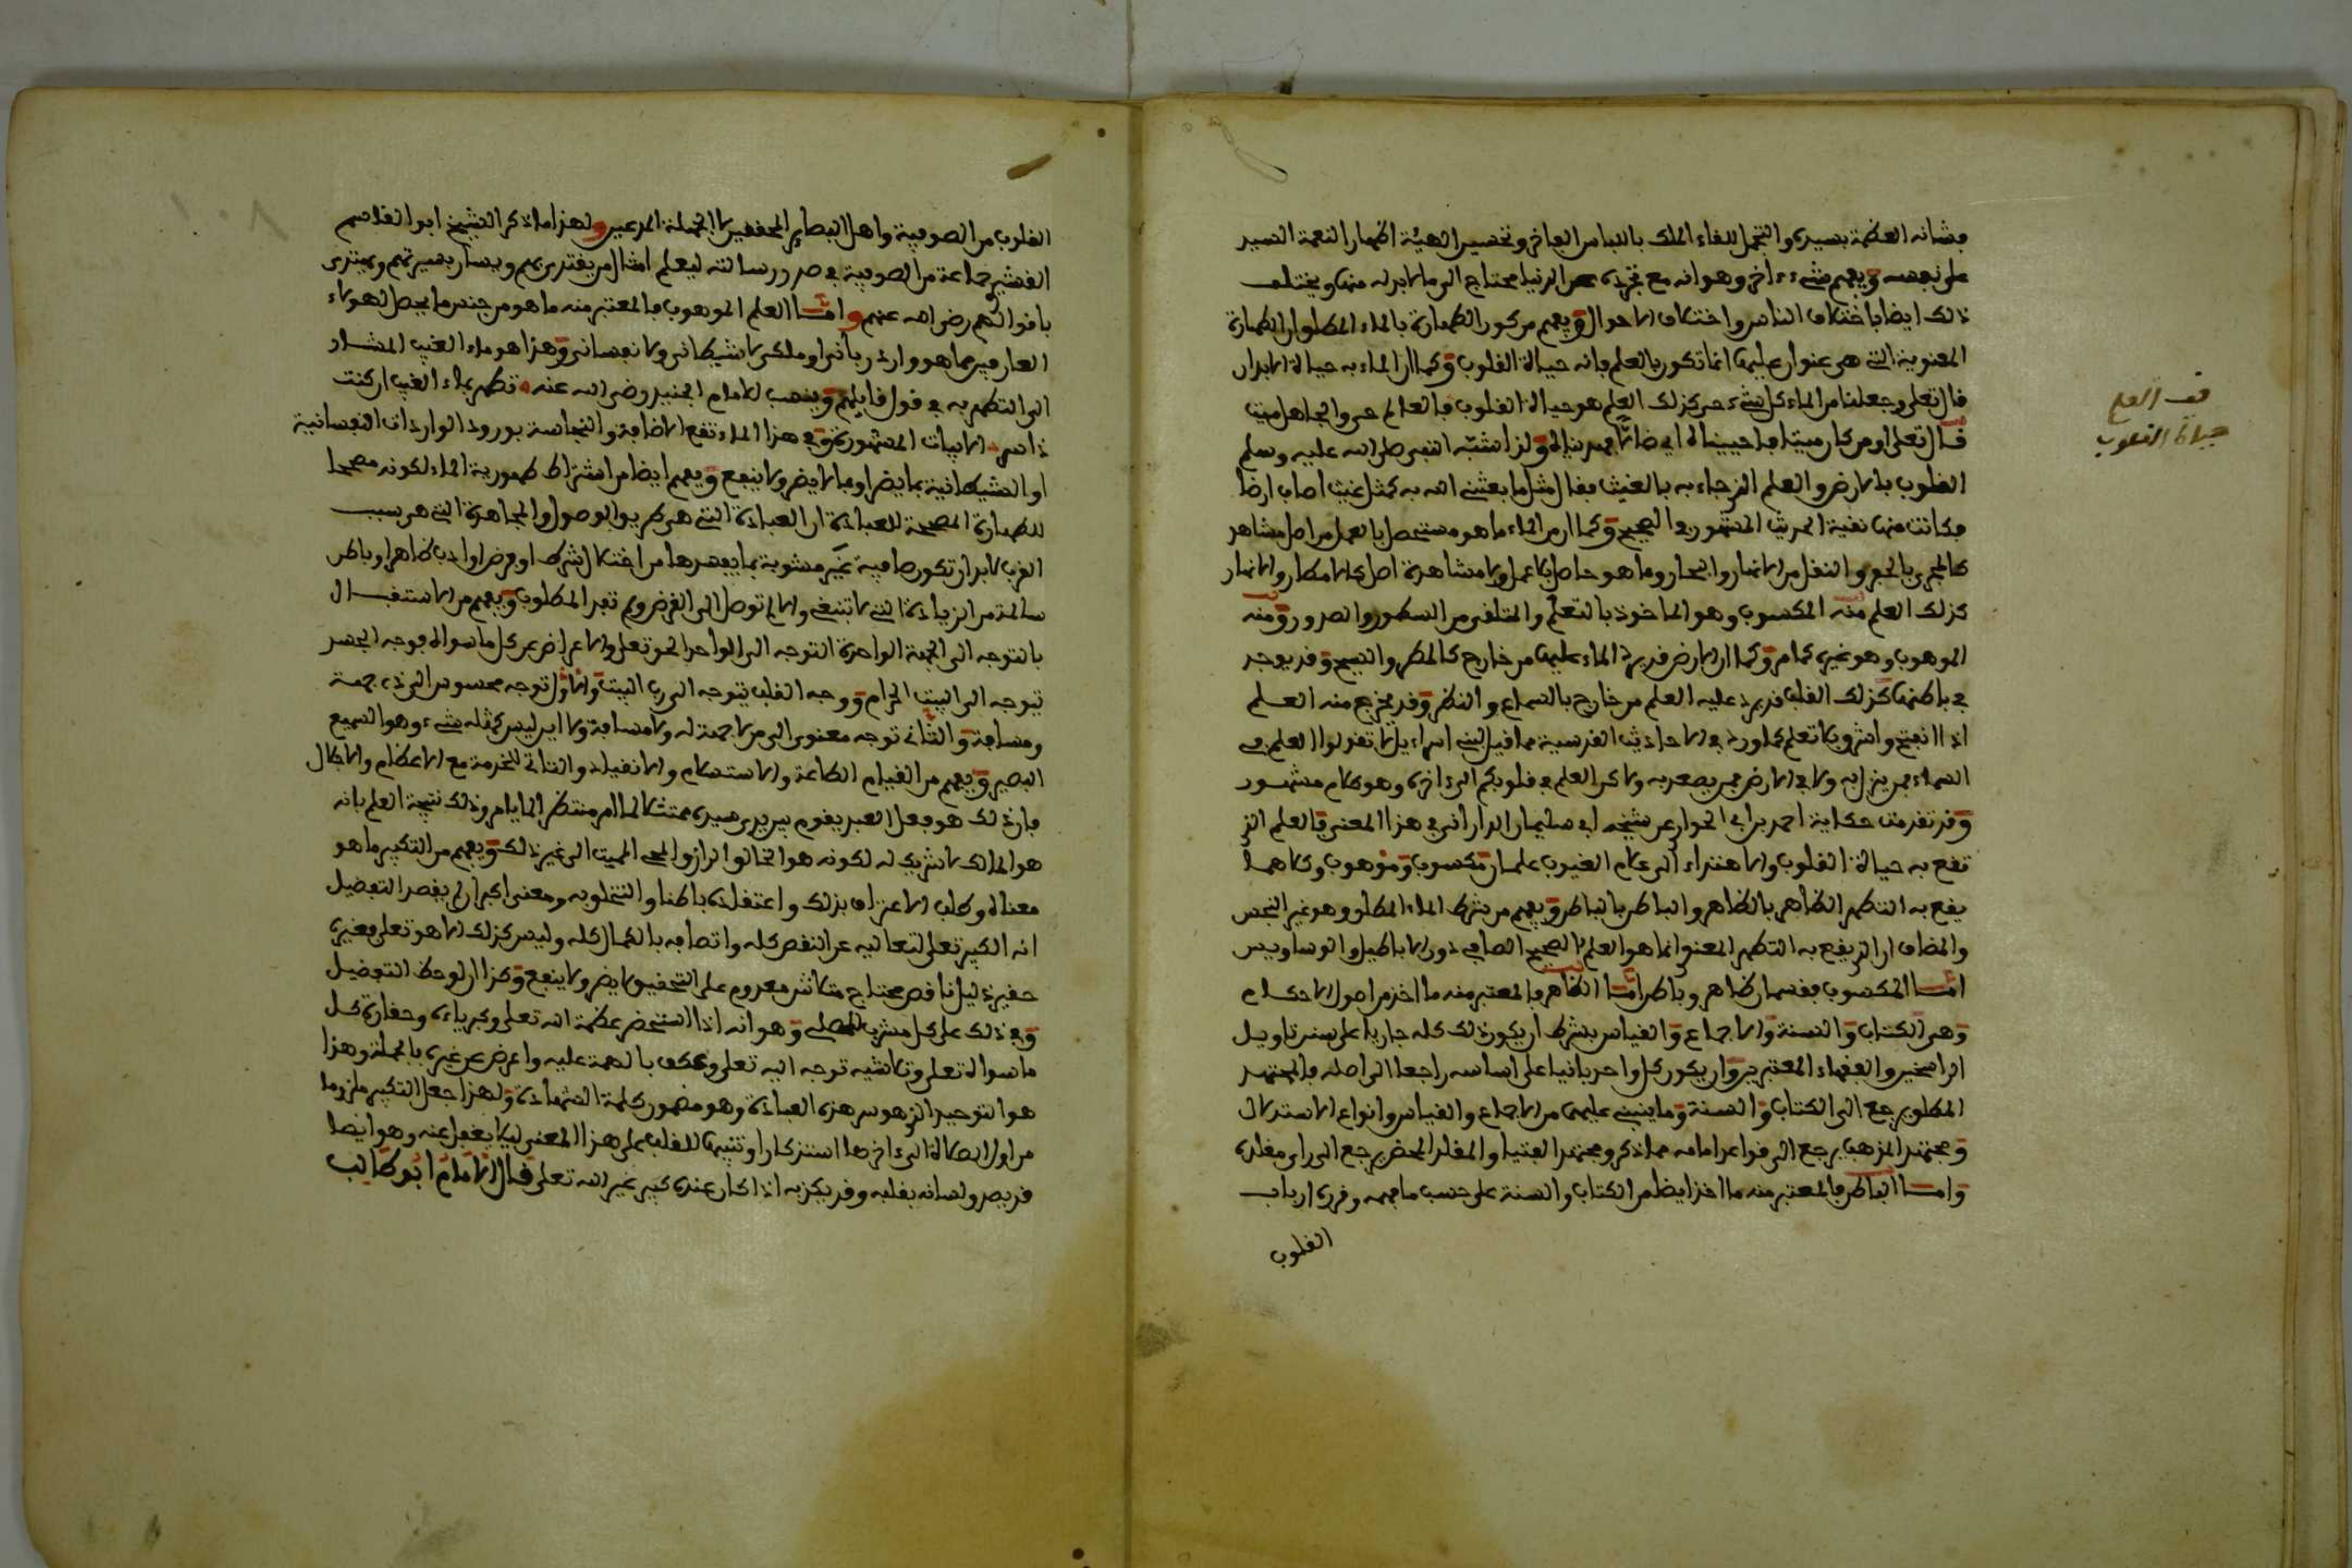 وشانه العظمة بسيدى والتجمل للقاء الملك باللباس الفاخر وتحسين الهيئة اظهارا لنعمة السيد
على نفسه ويفهم شىء ءاخر وهو انه مع تجرده عن الدنيا محتاج الى ما لا بد له منها ويختلف
ذلك ايضا باختلاف الناس واختلاف الاحوال ويفهم من كون الطهارة بالماء المطلق ان الطهارة
المعنوية التى هى عنوان عليها انما تكون بالعلم فانه حياة القلوب وكما ان الماء به حياة الابدان
قال تعلى وجعلنا من الماء كل شىء حى كذلك العلم هو حياة القلوب فالعالم حى والجاهل ميت
قال تعلى اومن كان ميتا فاحييناه اى ضالا فهديناه ولذا شبه النبى صلى الله عليه وسلم
القلوب بالارض والعلم الذى جاء به بالغيث فقال مثل ما بعثنى الله به كمثل غيث اصاب ارضا
فكانت منها نقية الحديث المشهور فى الصحيح وكما ان من الماء ما هو مستحصل بالعمل من اصل مشاهد
كالمجرى بالحفر والنقل من الانهار والبحار وما هو حاصل بلا عمل ولا مشاهدة اصل كالامطار والانهار
كذلك العلم منه المكسوب وهو الماخوذ بالتعلم والمتلقى من السطور والصدور ومنه
الموهوب وهو غيره كما مر وكما ان الارض قد يرد الماء عليها من خارج كالمطر والسيح وقد يوجد
فى باطنها كذلك القلب قد يرد عليه العلم من خارج بالسماع والنظر وقد يخرج منه العلم
اذا انفتح وانشرح بلا تعلم كما ورد فى الاحاديث القدسية مما قيل لبنى اسراءيل لا تقولوا العلم فى
السماء فمن ينزل به ولا فى الارض فمن يصعد به ولاكن العلم فى قلوبكم الى ءاخره وهو كلام مشهور
وقد تقدمت حكاية احمد بن ابى الحوارى عن شيخه ابى سليمان الدارانى فى هذا المعنى فالعلم الذى
تقع به حياة القلوب والاهتداء الى علام الغيوب علمان مكسوب وموهوب وكلاهما
يقع به التطهر الظاهر بالظاهر والباطن بالباطن ويفهم من شرط الماء المطلق وهو غير النجس
والمضاف ان الذى يقع به التطهر المعنوى انما هو العلم الصحيح الصافى دون الاباطيل والوساويس
امـا المكسوب فقسمان ظاهر وباطن امـا الظاهر فالمعتبر منه ما اخذ من اصول الاحكام
وهى الكتاب والسنة والاجماع والقياس بشرط ان يكون ذلك كله جاريا على سنن تاويل
الراسخين والفقهاء المعتبرين وان يكون كل واحد بانيا على اساسه راجعا الى اصله فالمجتهد
المطلق يرجع الى الكتاب والسنة وما ينبنى عليهما من الاجماع والقياس وانواع الاستدلال
ومجتهد المذهب يرجع الى قواعد امامه مما ذكر ومجتهد الفتيا والمقلد المحض يرجع الى راى مقلده
وامـا الباطن فالمعتبر منه ما اخذ ايضا من الكتاب والسنة على حسب ما فهمه وقرره ارباب
القلوب
قف العلم
حياة القلوب
القلوب من الصوفية واهل البصاير المحققين لا الجهلة المدعين ولهذا ما ذكر الشيخ ابو القاسم
القشيرى جماعة من الصوفية فى صدر رسالته ليعلم امثال من يقتدى بهم ويسار بسيرتهم ويهتدى
باقوالهم رضى الله عنهم وامـا العلم الموهوب فالمعتبر منه ما هو من جنس ما يحصل لهولاء
العارفين مما هو وارد ربانى او ملكى لا شيطانى ولا نفسانى وهذا هو ماء الغيب المشار
الى التطهر به فى قول قايلهم وينسب للامام الجنيد رضى الله عنه تطهر بماء الغيب ان كنت
ذا سر الابيات المشهورة وفى هذا الماء تقع الاضافة والنجاسة بورود الواردات النفسانية
او الشيطانية بما يضر او بما لا يضر ولا ينفع ويفهم ايضا من اشتراط طهورية الماء لكونه مصححا
للطهارة المصححة للعبادة ان العبادة التى هى طريق الوصول والمجاهدة التى هى سبب
القرب لا بد ان تكون صافية غير مشوبة بما يفسدها من اختلال شرط او فرض او ادب ظاهرا وباطنا
سالمة من الزيادة التى لا تنبغى والا لم توصل الى الغرض ولم تفد المطلوب ويفهم من الاستقبال
بالتوجه الى الجهة الواحدة التوجه الى الواحد الحق تعلى والاعراض عن كل ما سواه فوجه الجسد
يتوجه الى البيت الحرام ووجه القلب يتوجه الى رب البيت والاول توجه محسوس الى ذى جهة
ومسافة والثانى توجه معنوى الى من لا جهة له ولا مسافة ولا اين ليس كمثله شىء وهو السميع
البصير ويفهم من القيام الطاعة والاستسلام والانقياد والتاتى للخدمة مع الاعظام والاجلال
فان ذلك هو فعل العبد يقوم بين يدى سيده ممتثلا لما امر منتظرا لما يامر وذلك نتيجة العلم بانه
هو المالك لا شريك له لكونه هو الخالق الرازق المحى المميت الى غير ذلك ويفهم من التكبير ما هو
معناه وطلب الاعتراف بذلك واعتقاده باطنا والتخلق به ومعنى اكبر ان لم يقصد التفضيل
انه الكبير تعلى لتعاليه عن النقص كله واتصافه بالكمال كله وليس كذلك الا هو تعلى فغيره
حقير ذليل ناقص محتاج متلاش معدوم على التحقيق لا يضر ولا ينفع وكذا ان لوحظ التفضيل
وفى ذلك على كل مشرب للمصلى وهو انه اذا استحضر عظمة الله تعلى وكبرياءه وحقارة كل
ما سواه تعلى وتلاشيه توجه اليه تعلى وعكف بالهمة عليه واعرض عن غيره بالجملة وهذا
هو التوحيد الذى هو سر هذه العبادة وهو مضمون كلمة الشهادة ولهذا جعل التكبير ملزوما
من اول الصلاة الى ءاخرها استذكارا وتنبيها للقلب على هذا المعنى ليلا يغفل عنه وهو ايضا
قد يصدق لسانه بقلبه وقد يكذبه اذا كان عنده كبير غير الله تعلى قال الامام ابو طالب